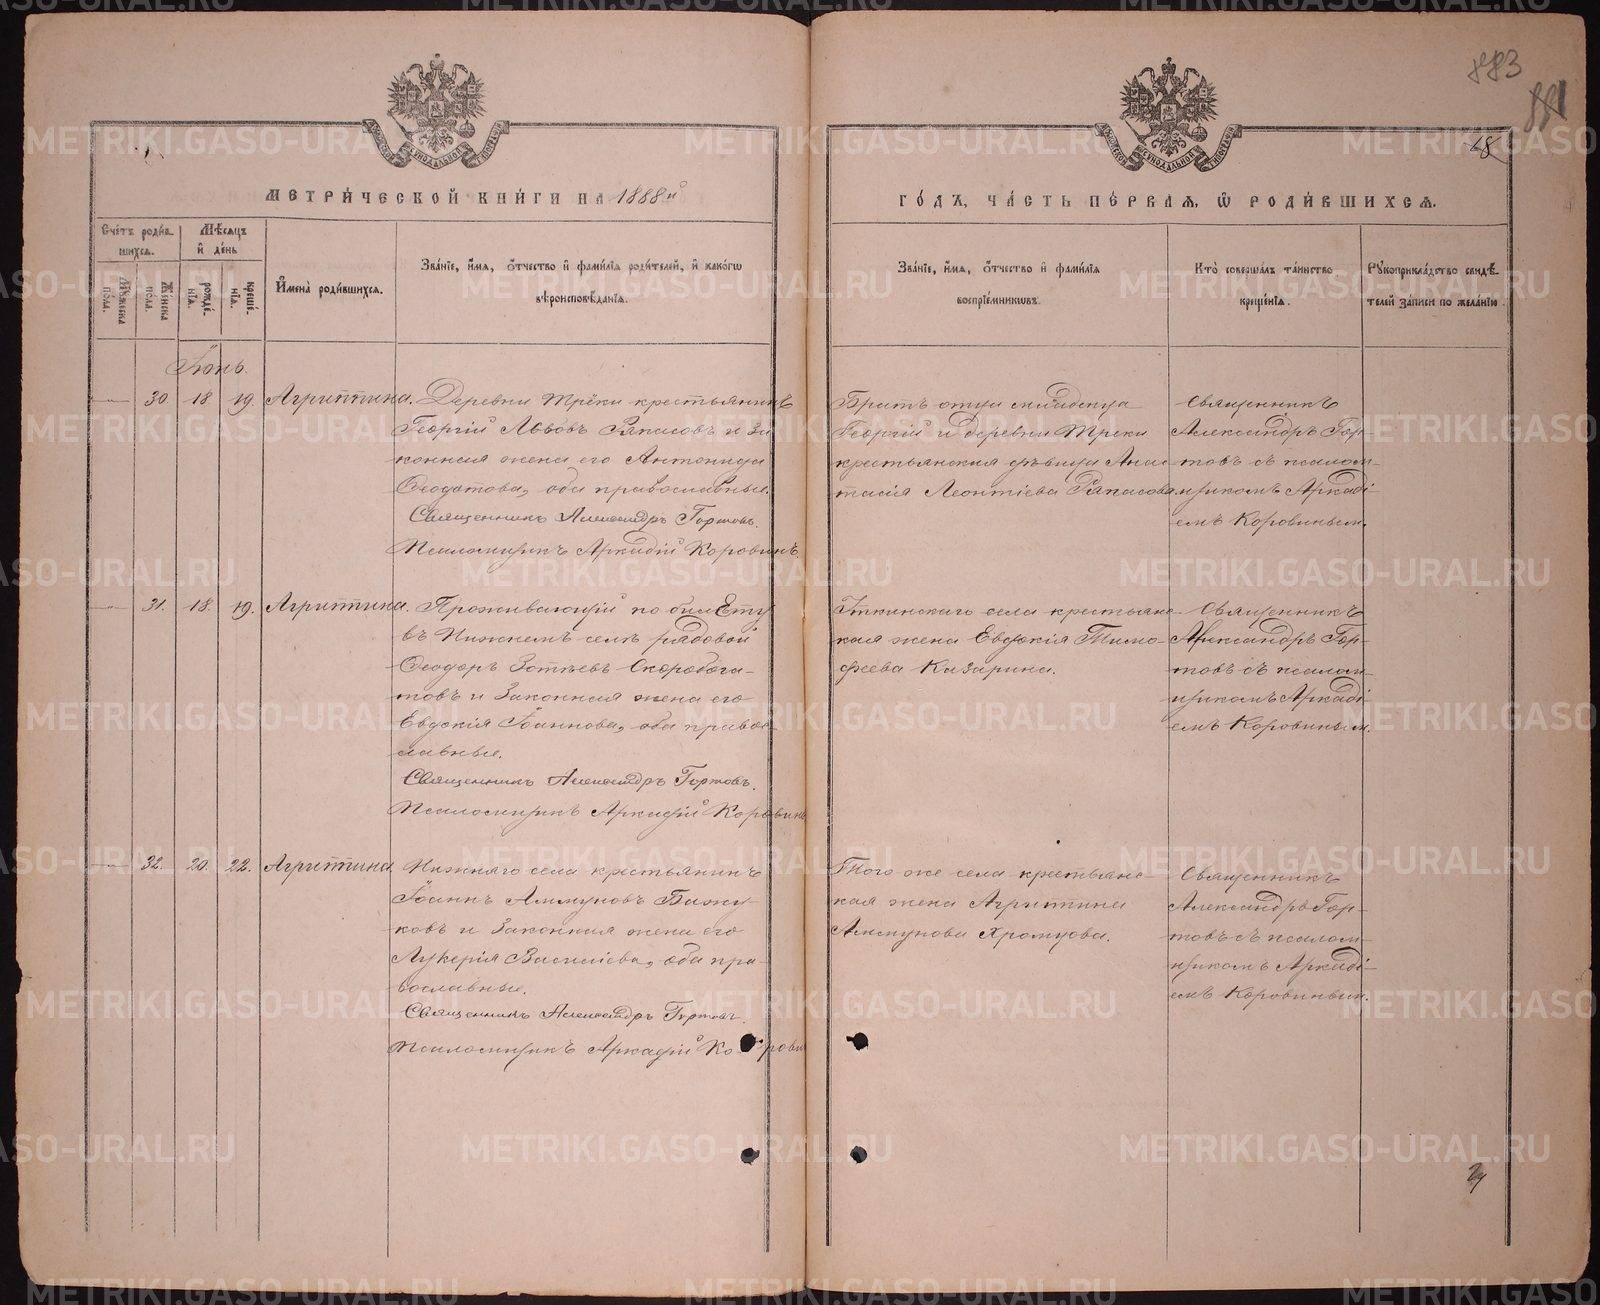 883
881
68
МЕТРИЧЕСКОЙ КНИГИ НА 1888й
ГОДЪ, ЧАСТЬ ПЕРВАЯ, Ѡ РОДИВШИХСЯ.
Счетъ родив-
шихся.
Мѣсяцъ
и день
Мужеска
пола.
Женска
пола.
рожде-
нія.
креще-
нія.
Имена родившихся.
Званіе, имя, отчество и фамилія родителей, и какогѡ
вѣроисповѣданія.
Званіе, имя, отчество и фамилія
воспріемниковъ.
Кто совершалъ таинство
крещенія.
Рукоприкладство свидѣ-
телей записи по желанію.
Іюнь.
30 18 19. Агриппина.
Деревни Трёки крестьянинъ
Георгій Львовъ и за
конная жена его Антонида
Ѳеодотова, оба православные.
Священникъ Александръ Гортовъ.
Псаломщикъ Аркадій Коровинъ
Братъ отца младенца
Георгій и деревни Треки
крестьянская дѣвица Анас
тасія Леонтіева
Священникъ
Александръ Гор-
товъ съ псалом-
щикомъ Аркаді-
емъ Коровинымъ.
31. 18. 19. Агриппина.
Проживающій по билету
въ Нижнемъ селѣ рядовой
Ѳеодоръ Зотѣевъ Скоробога-
товъ и законная жена его
Евдокія Іоаннова, оба право
славные.
Священникъ Александръ Гортовъ.
Псаломщикъ Аркадій Коровинъ
Уткинскаго села крестьянс
кая жена Евдокія Тимо-
феева Казарина.
Священникъ
Александръ Гор-
товъ съ псалом-
щикомъ Аркаді-
емъ Коровинымъ.
32. 20. 22. Агриппина.
Нижняго села крестьянинъ
Іоаннъ Бажу-
ковъ и законная жена его
Лукерія Василіева, оба пра-
вославные.
Священникъ Александръ Гортовъ
Псаломщикъ Аркадій Коровинъ
Того же села крестьянс
кая жена Агриппина
Хромцова.
Священникъ
Александръ Гор-
товъ съ псалом-
щикомъ Аркаді-
емъ Коровинымъ.
METRIKI.GASO-URAL.RU